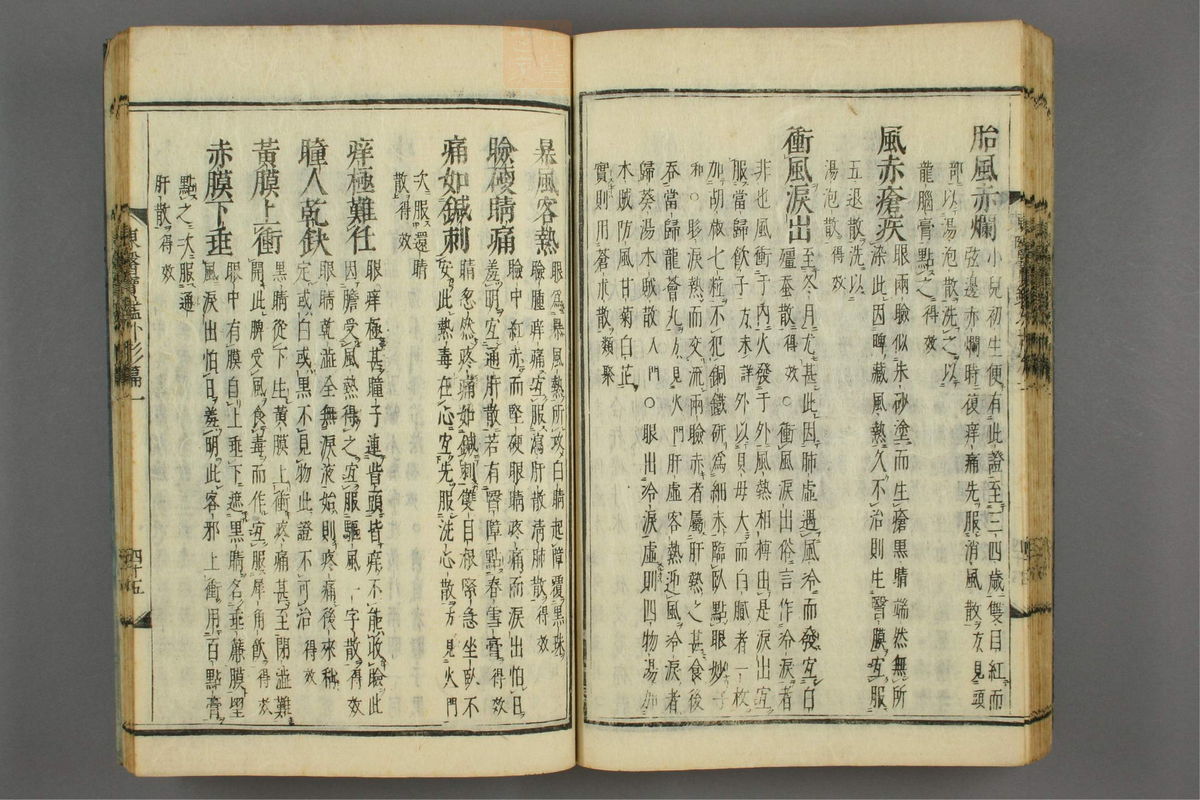 胎風赤爛 小兒初生便有此證至三四歲雙目紅而
弦邊赤爛時復痒痛先服消風散方見頭
部以湯泡散洗之以
龍腦膏點之得效
風赤瘡疾 眼兩瞼似朱砂塗而生瘡黑睛端然無所
染此因脾藏風熱久不治則生瞖膜宜服
五退散洗以
湯泡散得效
衝風淚出 至冬月尤甚此因肺虛遇風冷而發宜白
殭蚕散得效○衝風淚出俗言作冷淚者
非也風衝于內火發于外風熱相搏由是淚出宜
服當歸飮子方未詳外以貝母大而白膩者一枚
加胡椒七粒不犯銅鐵硏爲細末臨臥點眼妙子
和○眵淚熱而交流兩瞼赤者屬肝熱之甚食後
呑當歸龍薈丸方見火門肝虛客熱迎風冷淚者
歸葵湯木賊散入門○眼出冷淚虛則四物湯加
木賊防風甘菊白芷
實則用蒼朮散類聚
暴風客熱 眼爲暴風熱所攻白睛起障覆黑珠
瞼腫痒痛宜服瀉肝散淸肺散得效
瞼硬睛痛 瞼中紅赤而堅硬眼睛疼痛而淚出怕日
羞明宜通肝散若有瞖障點春雪膏得效
痛如鍼刺 睛忽然疼痛如鍼刺雙目根緊急坐臥不
安此熱毒在心宜先服洗心散方見火門
次服還睛
散得效
痒極難任 眼痒極甚瞳子連眥頭皆痒不能收瞼此
因膽受風熱得之宜服驅風一字散得效
瞳人乾缺 眼睛乾澁全無淚液始則疼痛後來稱
定或白或黑不見物此證不可治得效
黃膜上衝 黑睛從下生黃膜上衝疼痛甚至閉澁難
開此脾受風食毒而作宜服犀角飮得效
赤膜下垂 眼中有膜自上垂下遮黑睛名垂簾膜瞖
風淚出怕日羞明此客邪上衝用百點膏
點之次服通
肝散得效
東醫寶鑑外形篇一
四十五